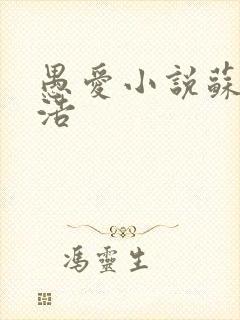 愚愛小說蘇
活
馮靈生